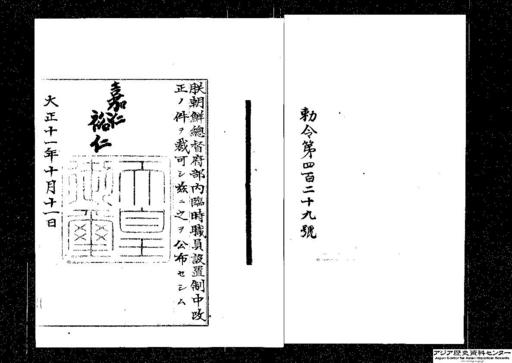 勅令第四百二十九號
朕朝鮮總督府部內臨時職員設置制中改
正ノ件ヲ裁可シ茲ニ之ヲ公布セシム
嘉仁
裕仁
天皇御璽
大正十一年十月十一日
アジア歴史資料センター
Japan Center for Asian Historical Records